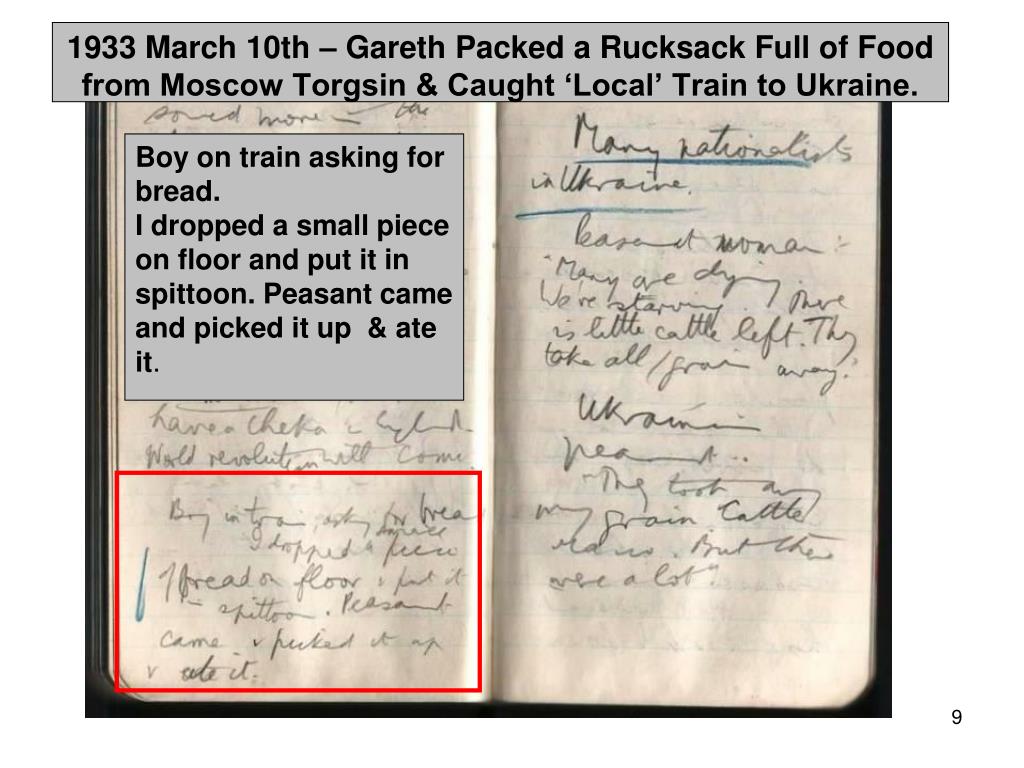 1933 March 10th – Gareth Packed a Rucksack Full of Food
from Moscow Torgsin & Caught ‘Local’ Train to Ukraine.
Boy on train asking for
bread.
I dropped a small piece
on floor and put it in
spittoon. Peasant came
and picked it up & ate
it.
more the
have a Cheka in England.
World revolution will come.
Boy on train asking for bread
I dropped a small piece
of bread on floor & put it
in spittoon. Peasant
came & picked it up
& ate it.
Many nationalists
in Ukraine.
Peasant woman:-
"Many are dying
We're starving. There
is little cattle left. They
take all grain away."
Ukrainian
peasant..
"They took away
my grain Cattle
But there
were a lot"
9